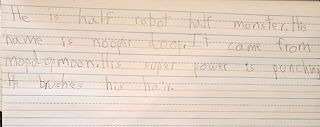 He is half robot half monster. His
name is nooper doop. It came from
mopd-opmoon. His super power is punching
He brushes his hair.